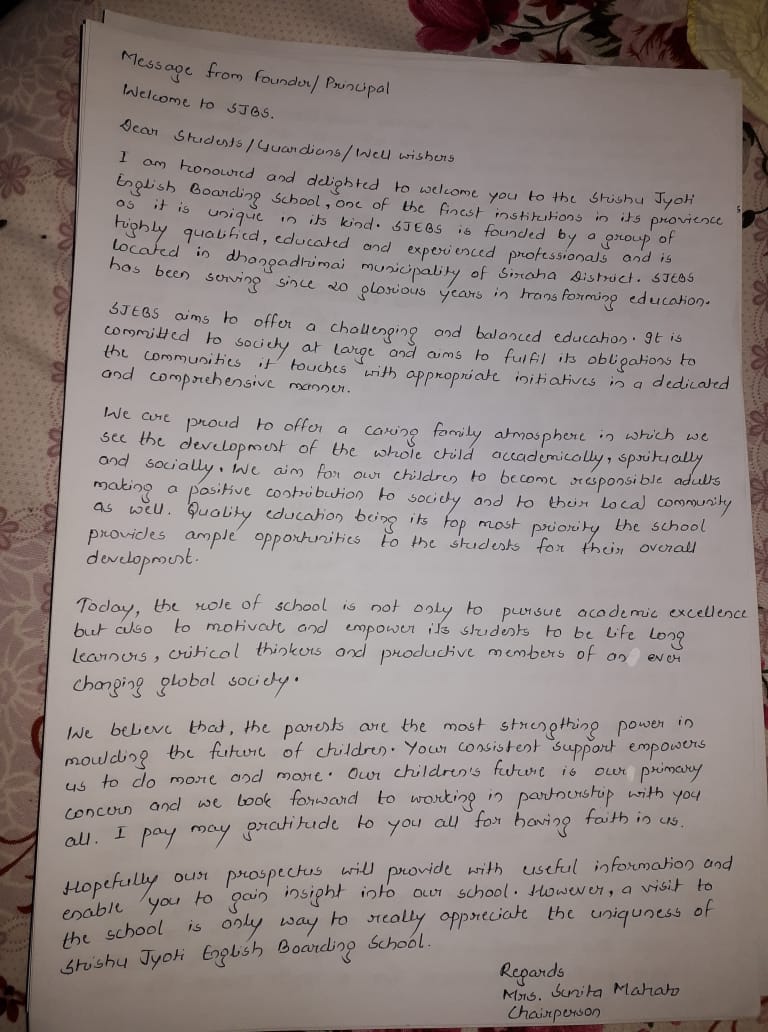 Message from Founder/ Principal
Welcome to SJBS.
Dear Students/Guardians/Well wishers
I am honoured and delighted to welcome you to the Shishu Jyoti
English Boarding School, one of the finest institutions in its provience
as it is unique in its kind. SJEBS is founded by a group of
highly qualified, educated and experienced professionals and is
located in dhangadhimai municipality of Siraha District. SJEBS
has been serving since 20 glorious years in transforming education.
SJEBS aims to offer a challenging and balanced education. It is
committed to society at large and aims to fulfil its obligations to
the communities it touches with appropriate initiatives in a dedicated
and comprehensive manner.
We are proud to offer a caring family atmosphere in which we
see the development of the whole child accademically, spritually
and socially. We aim for our children to become responsible adults
making a positive contribution to society and to their local community
as well. Quality education being its top most priority the school
provides ample opportunities to the students for their overall
development.
Today, the role of school is not only to pursue academic excellence
but also to motivate and empower its students to be life long
learners, critical thinkers and productive members of an ever
changing global society.
We believe that, the parents are the most strengthing power in
moulding the future of children. Your consistent support empowers
us to do more and more. Our children's future is our primary
concern and we look forward to working in partnership with you
all. I pay may gratitude to you all for having faith in us.
Hopefully our prospectus will provide with useful information and
enable you to gain insight into our school. However, a visit to
the school is only way to really appreciate the uniquness of
Shishu Jyoti English Boarding School.
Regards
Mrs. Sunita Mahato
Chairperson